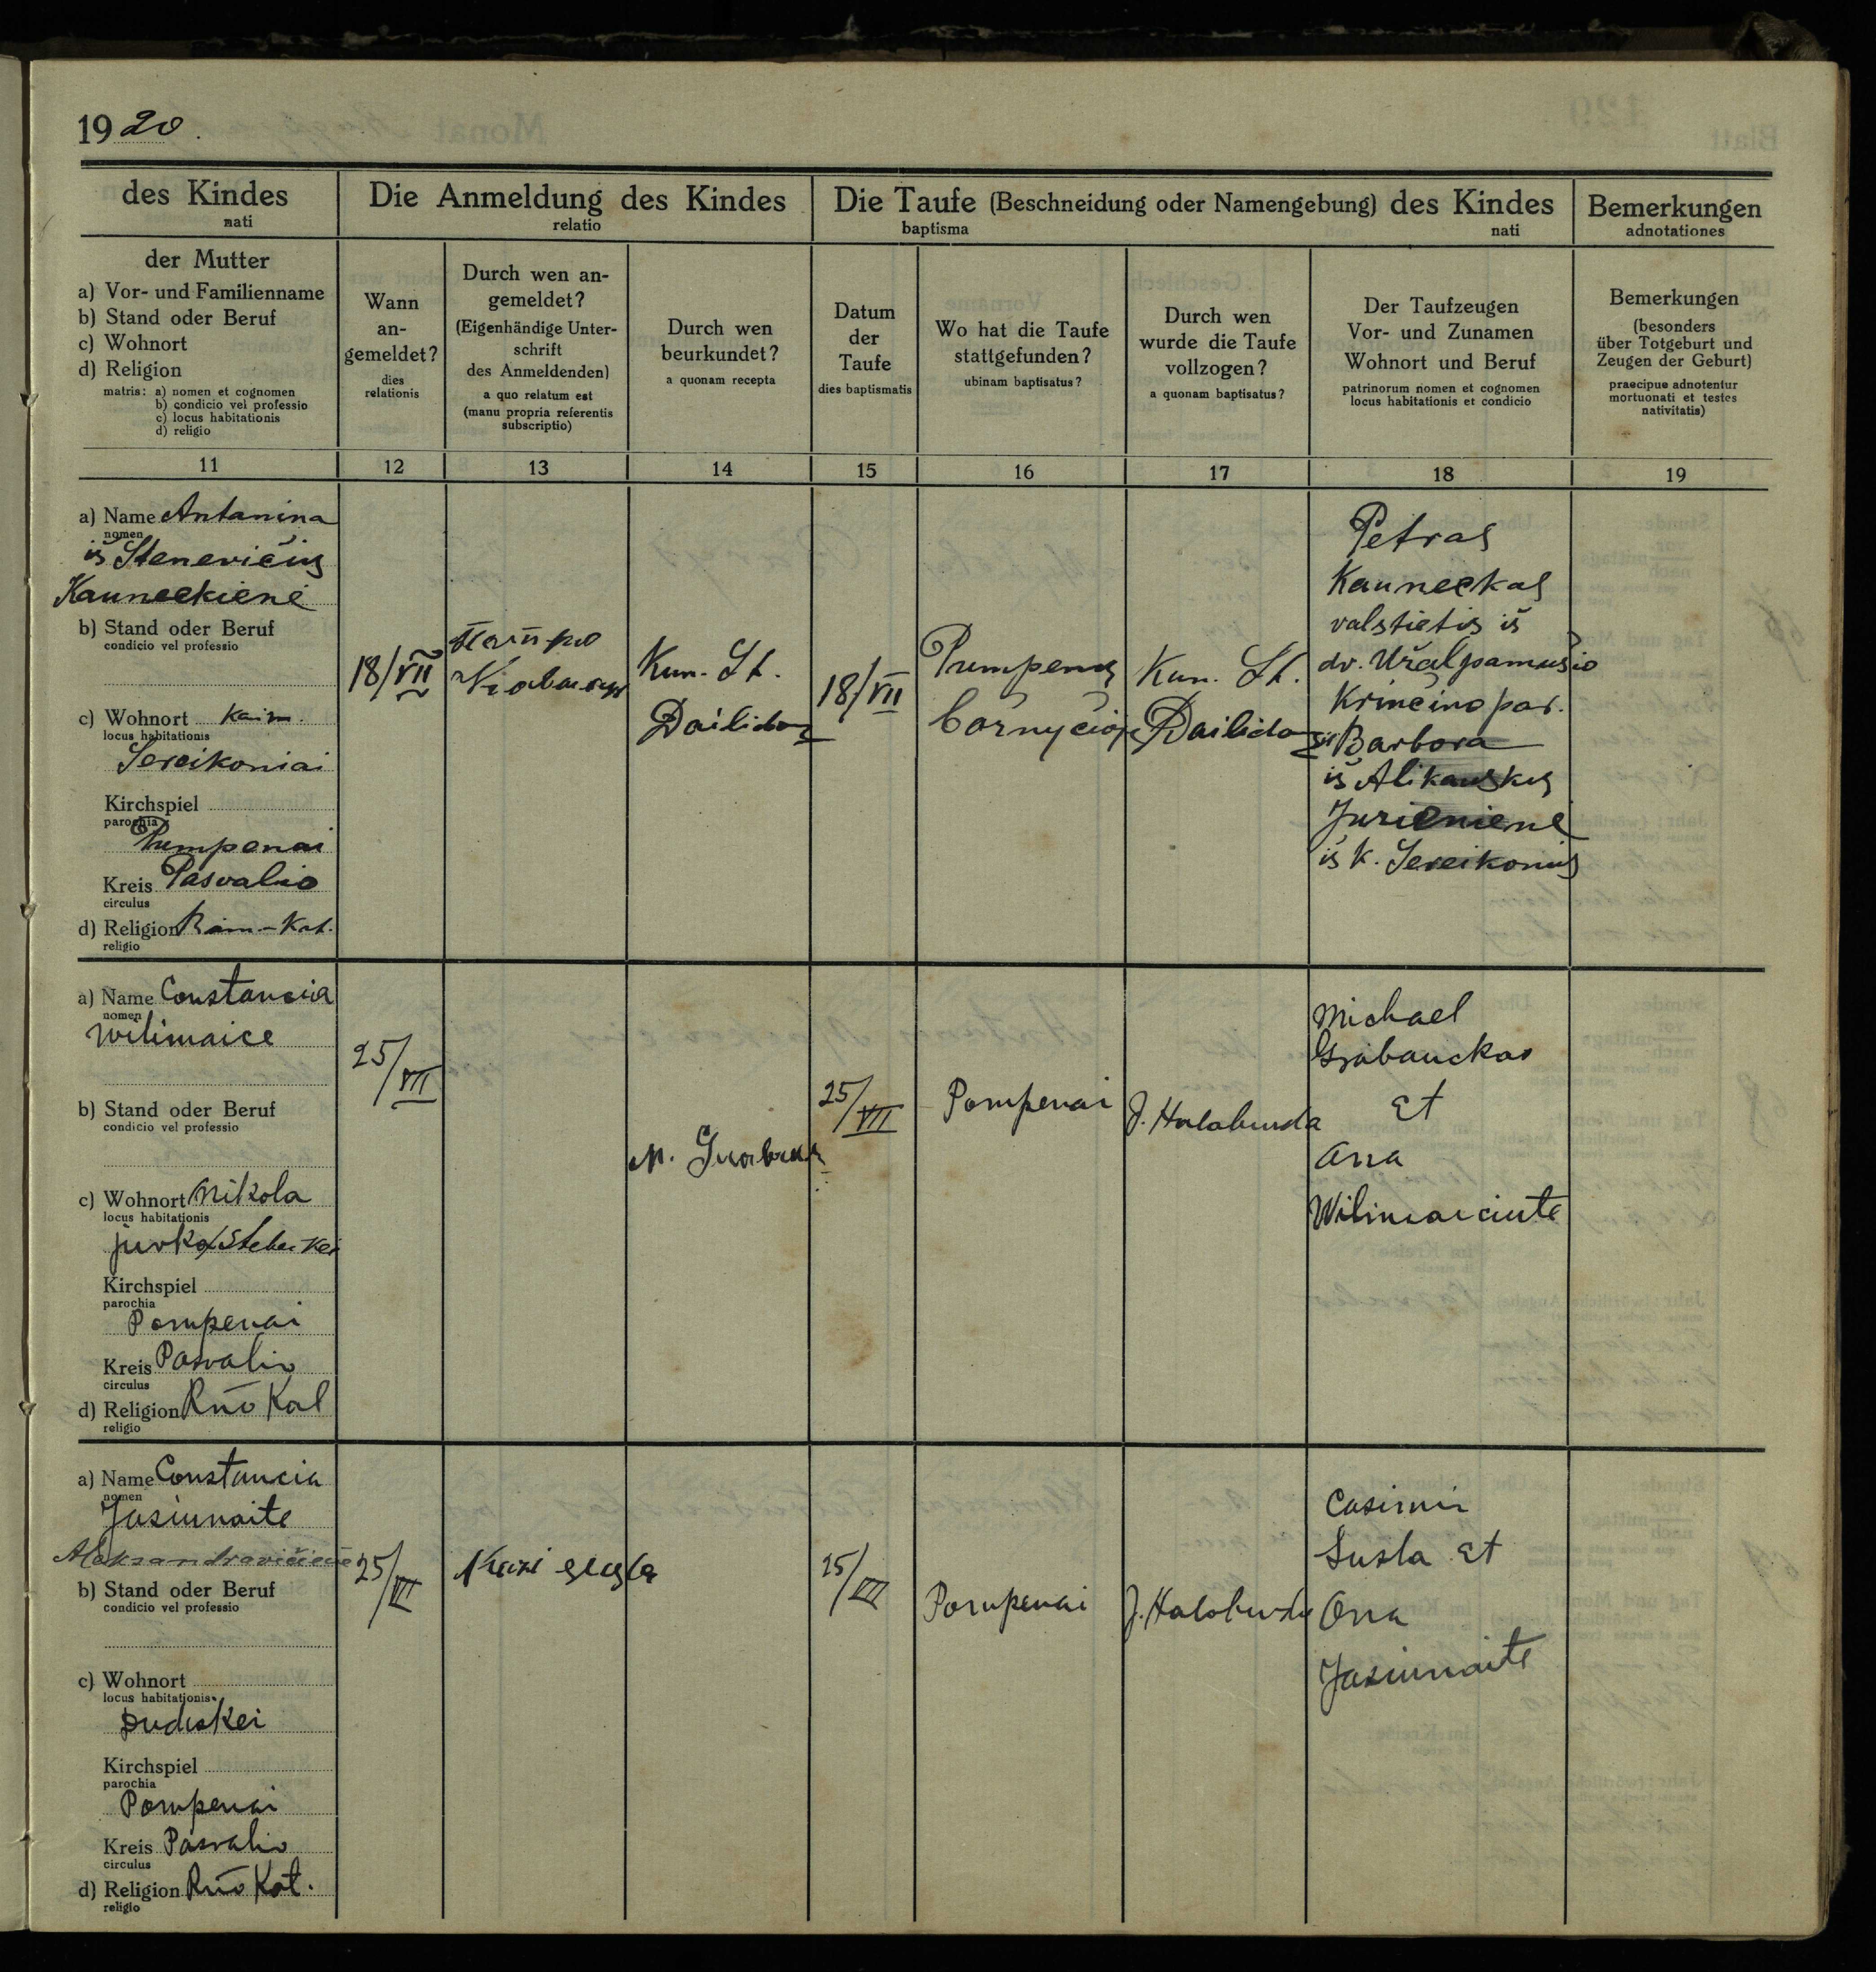 1920.
des Kindes
nati
Die Anmeldung des Kindes
relatio
Die Taufe (Beschneidung oder Namengebung) des Kindes
baptisma nati
Bemerkungen
adnotationes
der Mutter
a) Vor- und Familienname
b) Stand oder Beruf
c) Wohnort
d) Religion
matris: a) nomen et cognomen
b) condicio vel professio
c) locus habitationis
d) religio
Wann
an-
gemeldet?
dies
relationis
Durch wen an-
gemeldet?
(Eigenhändige Unter-
schrift
des Anmeldenden)
a quo relatum est
(manu propria referentis
subscriptio)
Durch wen
beurkundet?
a quonam recepta
Datum
der
Taufe
dies baptismatis
Wo hat die Taufe
stattgefunden?
ubinam baptisatus?
Durch wen
wurde die Taufe
vollzogen?
a quonam baptisatus?
Der Taufzeugen
Vor- und Zunamen
Wohnort und Beruf
patrinorum nomen et cognomen
locus habitationis et condicio
Bemerkungen
(besonders
über Totgeburt und
Zeugen der Geburt)
praecipue adnotentur
mortuonati et testes
nativitatis)
11 12 13 14 15 16 17 18 19
a) Name Antanina
nomen
iš Stenevičių
Kauneckienė
b) Stand oder Beruf
condicio vel professio
c) Wohnort kaim.
locus habitationis
Sereikoniai
Kirchspiel
parochia
Pumpenai
Kreis Pasvalio
circulus
d) Religion Rim-Kat.
religio
18/VII
Kun. St.
Dailidon
18/VII
Pumpenų
Kun. St.
Dailidon
Petras
Kauneckas
valstietis iš
dv.
Krinčino par.
Barbora
iš Alikauskų
Jurėnienė
iš k. Sereikonių
a) Name Constancia
nomen
Wilimaice
b) Stand oder Beruf
condicio vel professio
c) Wohnort Nikola
locus habitationis
Kirchspiel
parochia
Pompenai
Kreis Pasvalio
circulus
d) Religion Rno Kat
religio
25/VII
M.
25/VII
Pompenai
J. Halaburda
Michael
Grabauckas
et
Ona
Wilimaiciute
a) Name Constancia
nomen
Jasiunaite
Aleksandravičienė
b) Stand oder Beruf
condicio vel professio
c) Wohnort
locus habitationis
Kirchspiel
parochia
Pompenai
Kreis Pasvalio
circulus
d) Religion Rno Kat.
religio
25/VII
25/VII
Pompenai
J. Halaburda
Casimir
Susla et
Ona
Jasiunaite